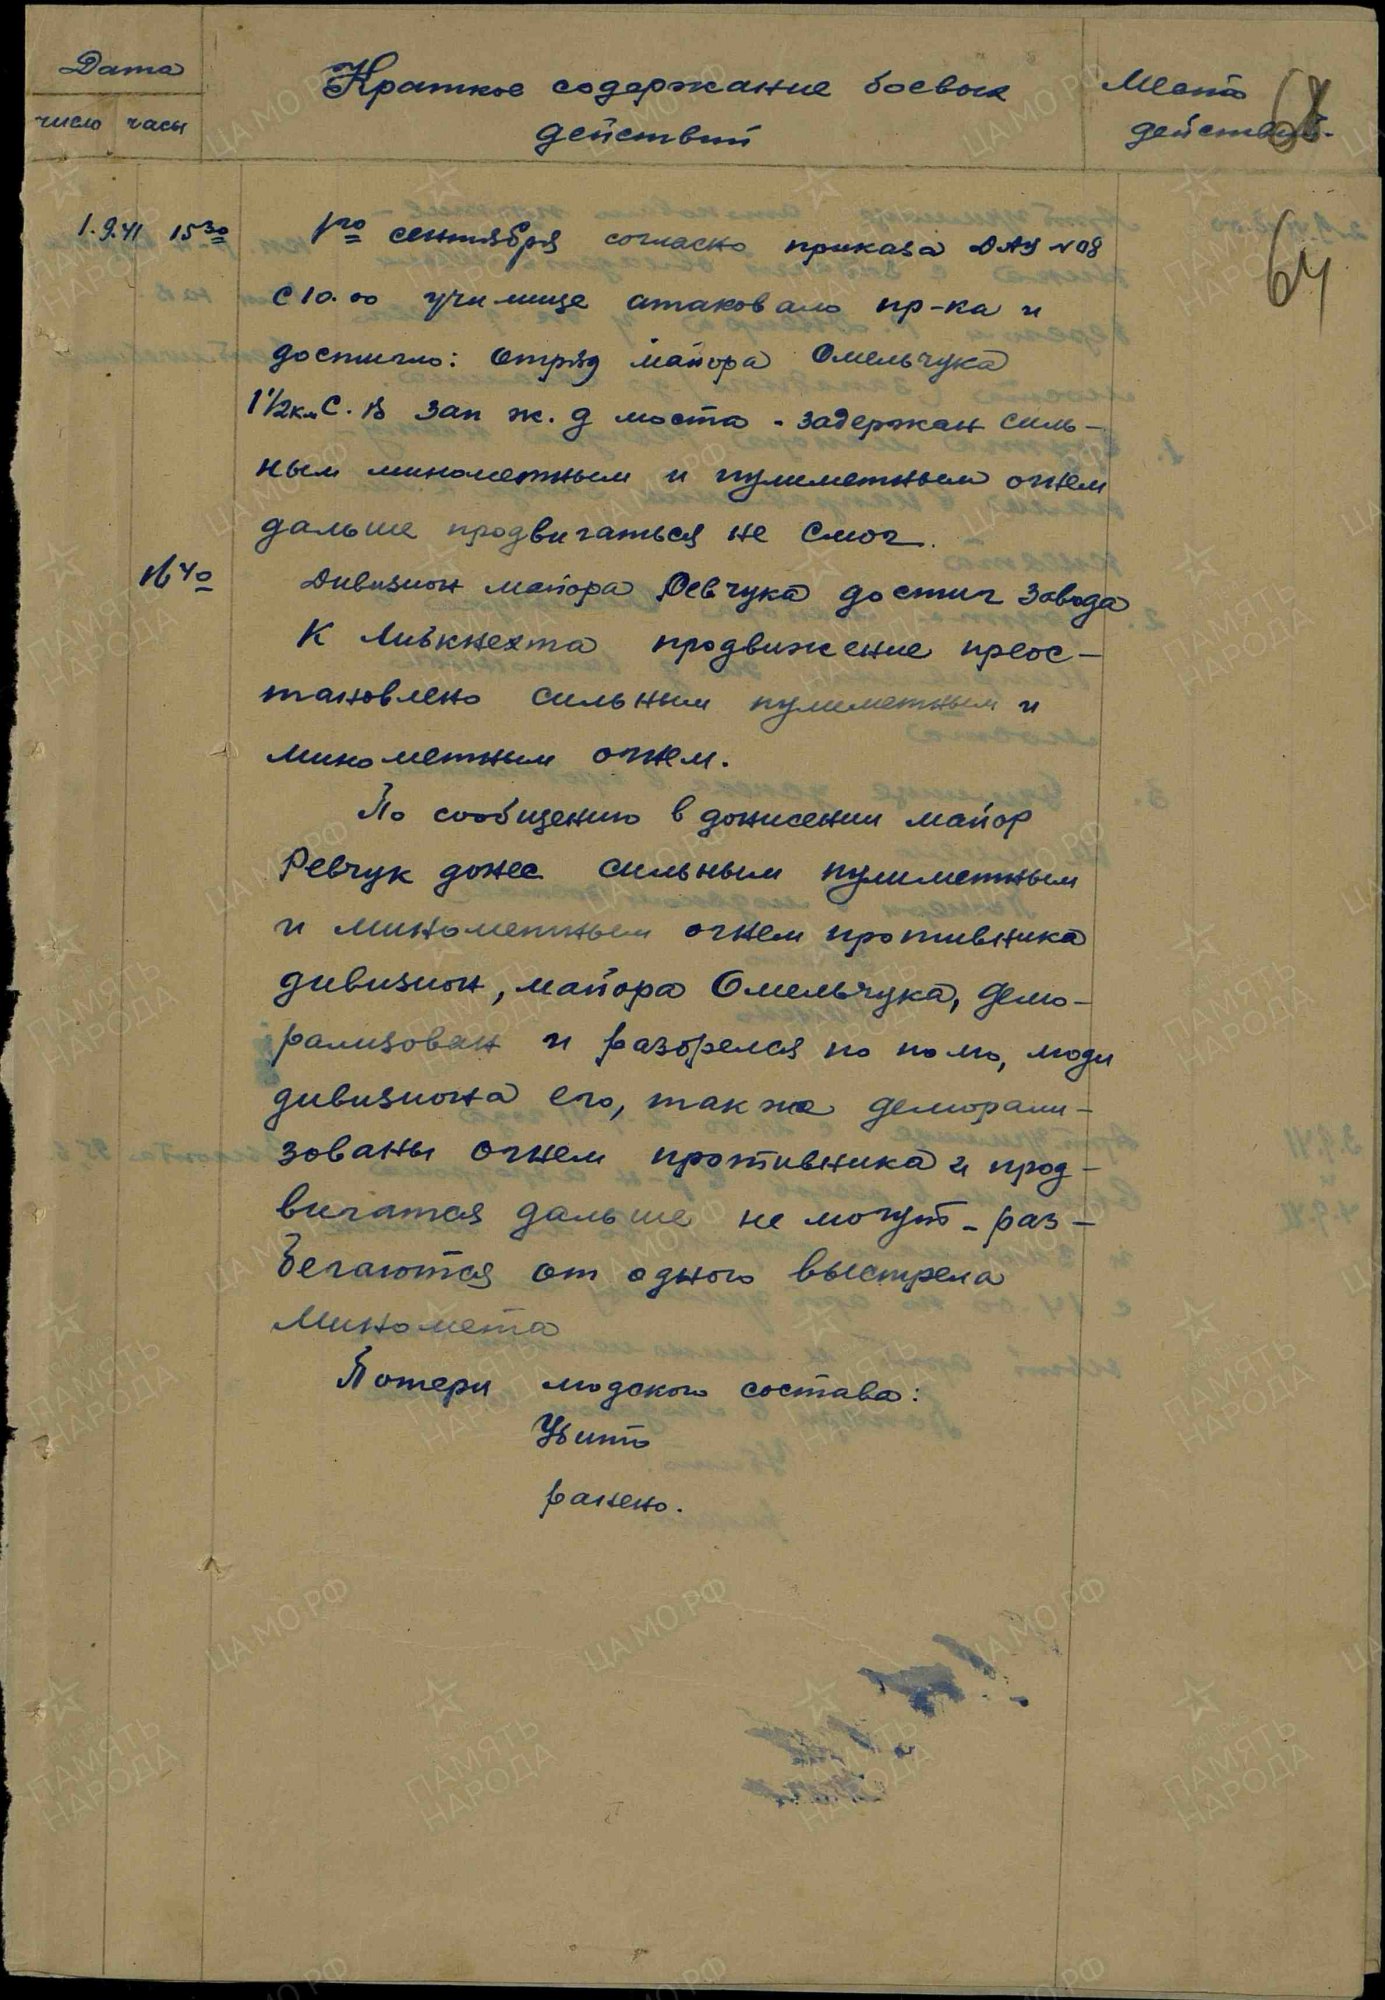 Дата
число часы
Краткое содержание боевых
действий
Место
действий.
64
1.9.41 15 30
1го сентября согласно приказа ДАУ №08
с 10.00 училище атаковало пр-ка и
достигло: отряд майора Омельчука
1½км С.В зап ж.д моста - задержан силь-
ным минометным и пулиметным огнем
дальше продвигаться не смог.
16 40
Дивизион майора Ревчука достиг завода
К Либкнехта продвижение преос-
тановлено сильным пулиметным и
минометным огнем.
По сообщению в донисении майор
Ревчук донес сильным пулиметным
и минометным огнем противника
дивизион, майора Омельчука, демо-
рализован и разбрелся по полю, люди
дивизиона его, также деморали-
зованы огнем противника и прод-
вигатся дальше не могут - раз-
бегаются от одного выстрела
миномета
Потери людского состава:
Убито
ранено.